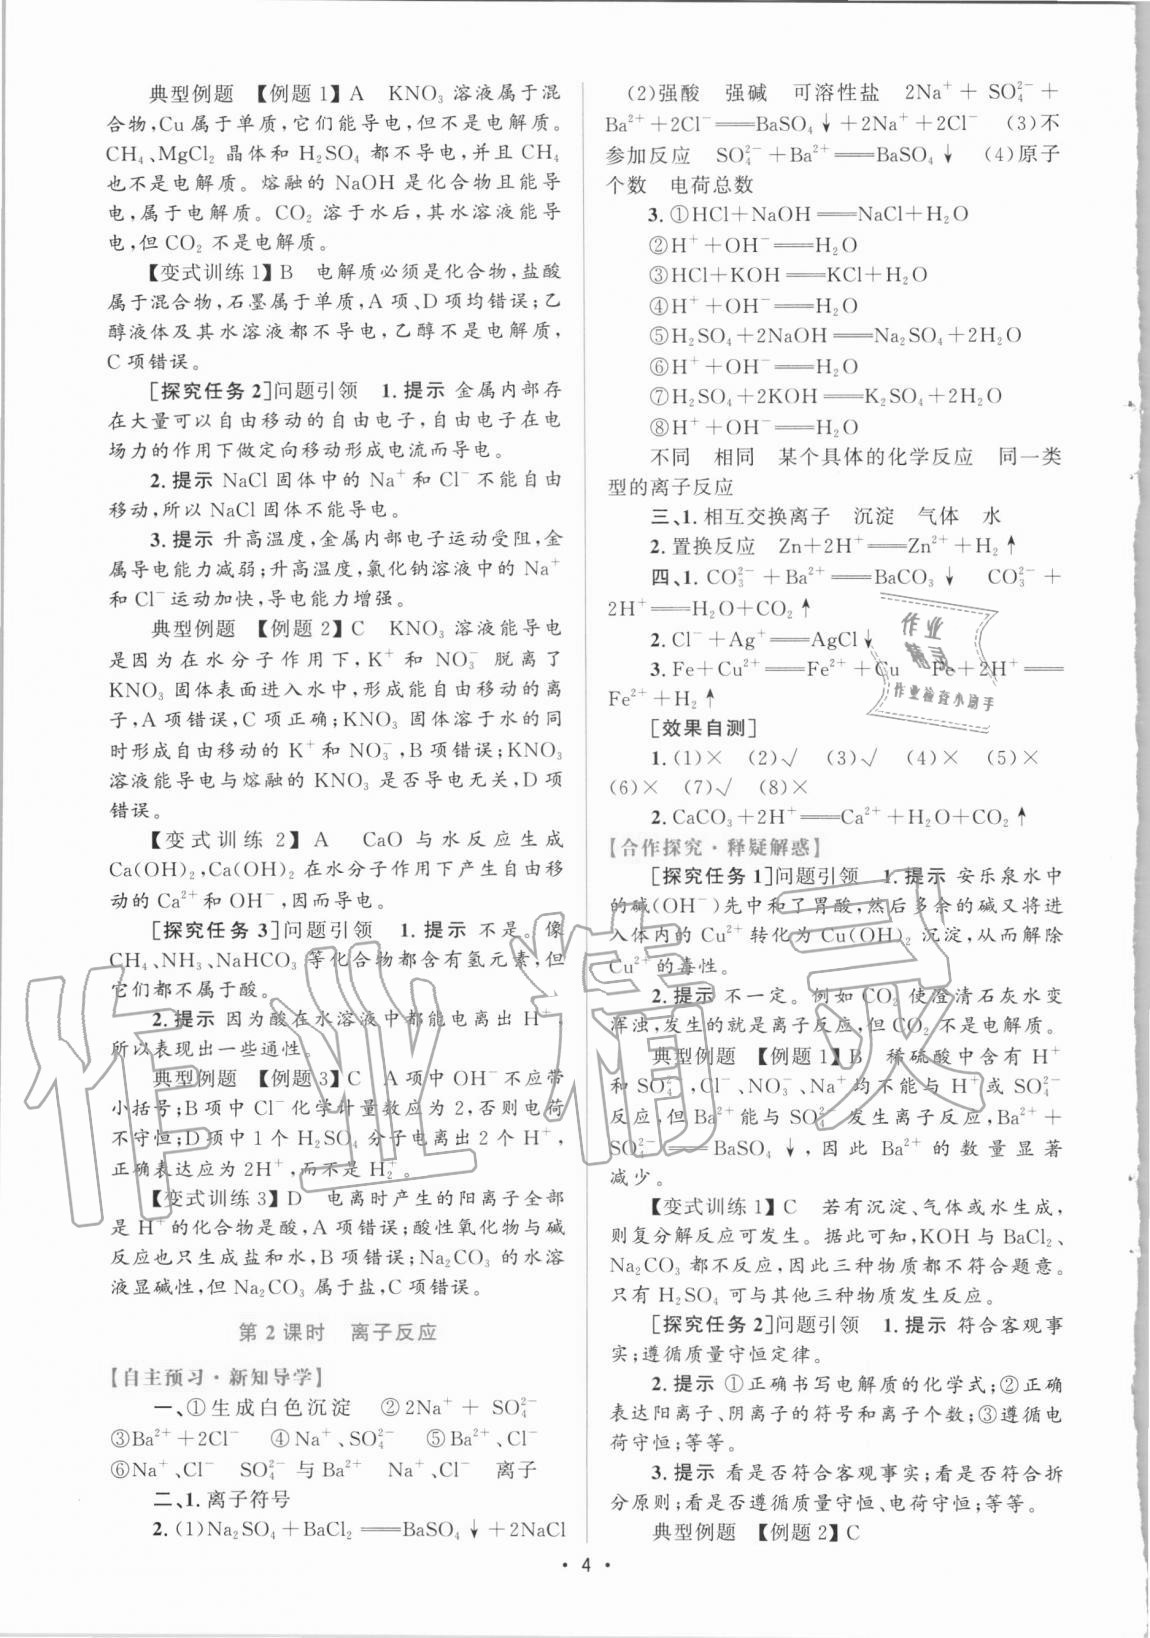 典型例题 【例题1】A KNO₃ 溶液属于混
合物,Cu 属于单质,它们能导电,但不是电解质。
CH₄、MgCl₂ 晶体和 H₂SO₄ 都不导电,并且 CH₄
也不是电解质。熔融的 NaOH 是化合物且能导
电,属于电解质。CO₂ 溶于水后,其水溶液能导
电,但 CO₂ 不是电解质。
【变式训练1】B 电解质必须是化合物,盐酸
属于混合物,石墨属于单质,A 项、D 项均错误;乙
醇液体及其水溶液都不导电,乙醇不是电解质,
C 项错误。
[探究任务2]问题引领 1.提示 金属内部存
在大量可以自由移动的自由电子,自由电子在电
场力的作用下做定向移动形成电流而导电。
2.提示 NaCl 固体中的 Na⁺ 和 Cl⁻ 不能自由
移动,所以 NaCl 固体不能导电。
3.提示 升高温度,金属内部电子运动受阻,金
属导电能力减弱;升高温度,氯化钠溶液中的 Na⁺
和 Cl⁻ 运动加快,导电能力增强。
典型例题 【例题2】C KNO₃ 溶液能导电
是因为在水分子作用下,K⁺ 和 NO₃⁻ 脱离了
KNO₃ 固体表面进入水中,形成能自由移动的离
子,A 项错误,C 项正确;KNO₃ 固体溶于水的同
时形成自由移动的 K⁺ 和 NO₃⁻,B 项错误;KNO₃
溶液能导电与熔融的 KNO₃ 是否导电无关,D 项
错误。
【变式训练2】A CaO 与水反应生成
Ca(OH)₂,Ca(OH)₂ 在水分子作用下产生自由移
动的 Ca²⁺ 和 OH⁻,因而导电。
[探究任务3]问题引领 1.提示 不是。像
CH₄、NH₃、NaHCO₃ 等化合物都含有氢元素,但
它们都不属于酸。
2.提示 因为酸在水溶液中都能电离出 H⁺,
所以表现出一些通性。
典型例题 【例题3】C A 项中 OH⁻ 不应带
小括号;B 项中 Cl⁻ 化学计量数应为 2,否则电荷
不守恒;D 项中 1 个 H₂SO₄ 分子电离出 2 个 H⁺,
正确表达应为 2H⁺,而不是 H₂⁺。
【变式训练3】D 电离时产生的阳离子全部
是 H⁺ 的化合物是酸,A 项错误;酸性氧化物与碱
反应也只生成盐和水,B 项错误;Na₂CO₃ 的水溶
液显碱性,但 Na₂CO₃ 属于盐,C 项错误。
第2课时 离子反应
【自主预习·新知导学】
一、①生成白色沉淀 ②2Na⁺+SO₄²⁻
③Ba²⁺+2Cl⁻ ④Na⁺、SO₄²⁻ ⑤Ba²⁺、Cl⁻
⑥Na⁺、Cl⁻ SO₄²⁻ 与 Ba²⁺ Na⁺、Cl⁻ 离子
二、1.离子符号
2.(1)Na₂SO₄+BaCl₂══BaSO₄↓+2NaCl
(2)强酸 强碱 可溶性盐 2Na⁺+SO₄²⁻+
Ba²⁺+2Cl⁻══BaSO₄↓+2Na⁺+2Cl⁻ (3)不
参加反应 SO₄²⁻+Ba²⁺══BaSO₄↓ (4)原子
个数 电荷总数
3.①HCl+NaOH══NaCl+H₂O
②H⁺+OH⁻══H₂O
③HCl+KOH══KCl+H₂O
④H⁺+OH⁻══H₂O
⑤H₂SO₄+2NaOH══Na₂SO₄+2H₂O
⑥H⁺+OH⁻══H₂O
⑦H₂SO₄+2KOH══K₂SO₄+2H₂O
⑧H⁺+OH⁻══H₂O
不同 相同 某个具体的化学反应 同一类
型的离子反应
三、1.相互交换离子 沉淀 气体 水
2.置换反应 Zn+2H⁺══Zn²⁺+H₂↑
四、1. CO₃²⁻+Ba²⁺══BaCO₃↓ CO₃²⁻+
2H⁺══H₂O+CO₂↑
2. Cl⁻+Ag⁺══AgCl↓
3. Fe+Cu²⁺══Fe²⁺+Cu Fe+2H⁺══
Fe²⁺+H₂↑
[效果自测]
1.(1)× (2)√ (3)√ (4)× (5)×
(6)× (7)√ (8)×
2. CaCO₃+2H⁺══Ca²⁺+H₂O+CO₂↑
【合作探究·释疑解惑】
[探究任务1]问题引领 1.提示 安乐泉水中
的碱(OH⁻)先中和了胃酸,然后多余的碱又将进
入体内的 Cu²⁺ 转化为 Cu(OH)₂ 沉淀,从而解除
Cu²⁺ 的毒性。
2.提示 不一定。例如 CO₂ 使澄清石灰水变
浑浊,发生的就是离子反应,但 CO₂ 不是电解质。
典型例题 【例题1】B 稀硫酸中含有 H⁺
和 SO₄²⁻,Cl⁻、NO₃⁻、Na⁺ 均不能与 H⁺ 或 SO₄²⁻
反应,但 Ba²⁺ 能与 SO₄²⁻ 发生离子反应,Ba²⁺+
SO₄²⁻══BaSO₄↓,因此 Ba²⁺ 的数量显著
减少。
【变式训练1】C 若有沉淀、气体或水生成,
则复分解反应可发生。据此可知,KOH 与 BaCl₂、
Na₂CO₃ 都不反应,因此三种物质都不符合题意。
只有 H₂SO₄ 可与其他三种物质发生反应。
[探究任务2]问题引领 1.提示 符合客观事
实;遵循质量守恒定律。
2.提示 ①正确书写电解质的化学式;②正确
表达阳离子、阴离子的符号和离子个数;③遵循电
荷守恒;等等。
3.提示 看是否符合客观事实;看是否符合拆
分原则;看是否遵循质量守恒、电荷守恒;等等。
典型例题 【例题2】C
· 4 ·
作业
精灵
作业检查小助手
作业精灵